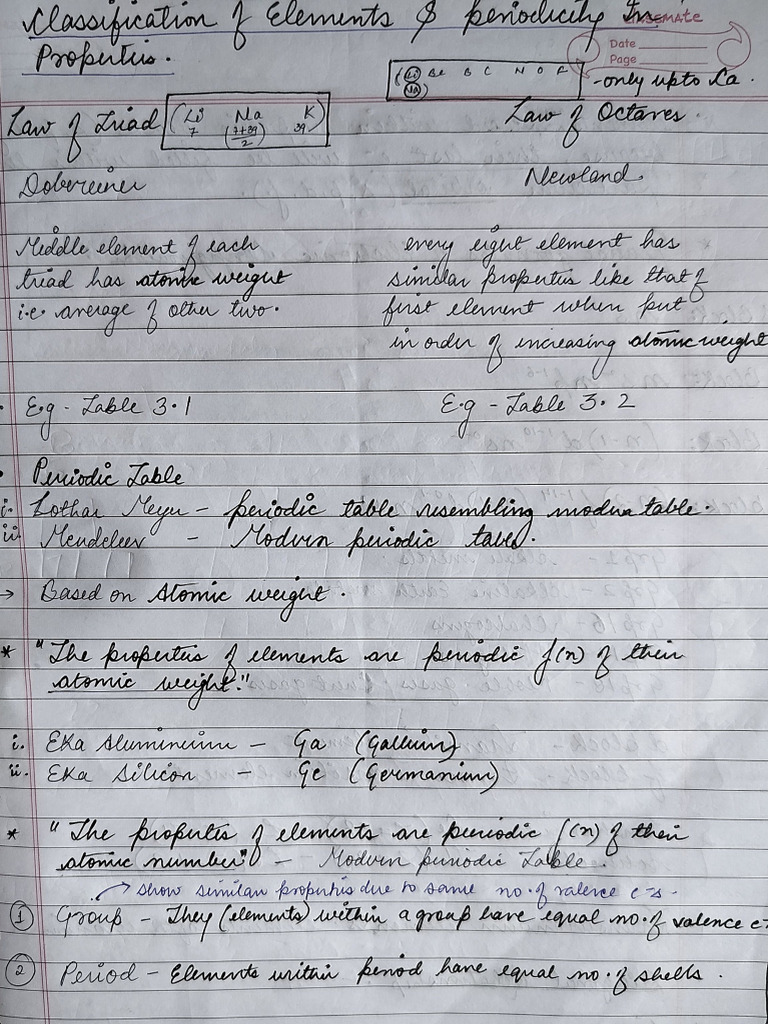 Classification of Elements & periodicity In
Properties.
CLASSMATE
Date
Page
(Li Be B C N O F
Na)
- only upto Ca.
Law of Triad (Li Na K)
7 (7+39)/2 39
Law of Octaves.
Dobereiner
Newland.
Middle element of each
triad has atomic weight
i.e. average of other two.
every eight element has
similar properties like that of
first element when put
in order of increasing atomic weight
E.g - Table 3.1
E.g - Table 3.2
Periodic Table
i. Lothar Meyer - periodic table resembling modern table.
ii. Mendeleev - Modern periodic table.
→ Based on Atomic weight.
* "The properties of elements are periodic f(n) of their
atomic weight."
i. EKa Aluminium - Ga (Gallium)
ii. EKa Silicon - Ge (Germanium)
* "The properties of elements are periodic f(n) of their
atomic number" - Modern periodic Table.
→ show similar properties due to same no. of valence e-s.
① Group - They (elements) within a group have equal no. of valence e-
② Period - Elements within period have equal no. of shells.